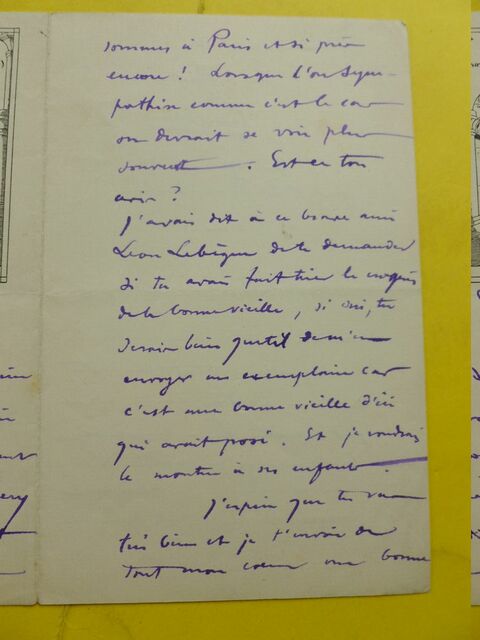 sommes à Paris et si près
encore ! Lorsque l'on sym-
pathise comme c'est le cas
on devrait se voir plus
souvent . Est ce ton
avis ?
J'avais dit à ce brave ami
Léon Lebègue de te demander
si tu avais fait tirer le croquis
de la bonne vieille , si oui, tu
serais bien gentil de m'en
envoyer un exemplaire car
c'est une bonne vieille d'ici
qui avait posé . Et je voudrais
le montrer à ses enfants .
J'espère que tu vas
très bien et je t'envoie de
tout mon cœur une bonne